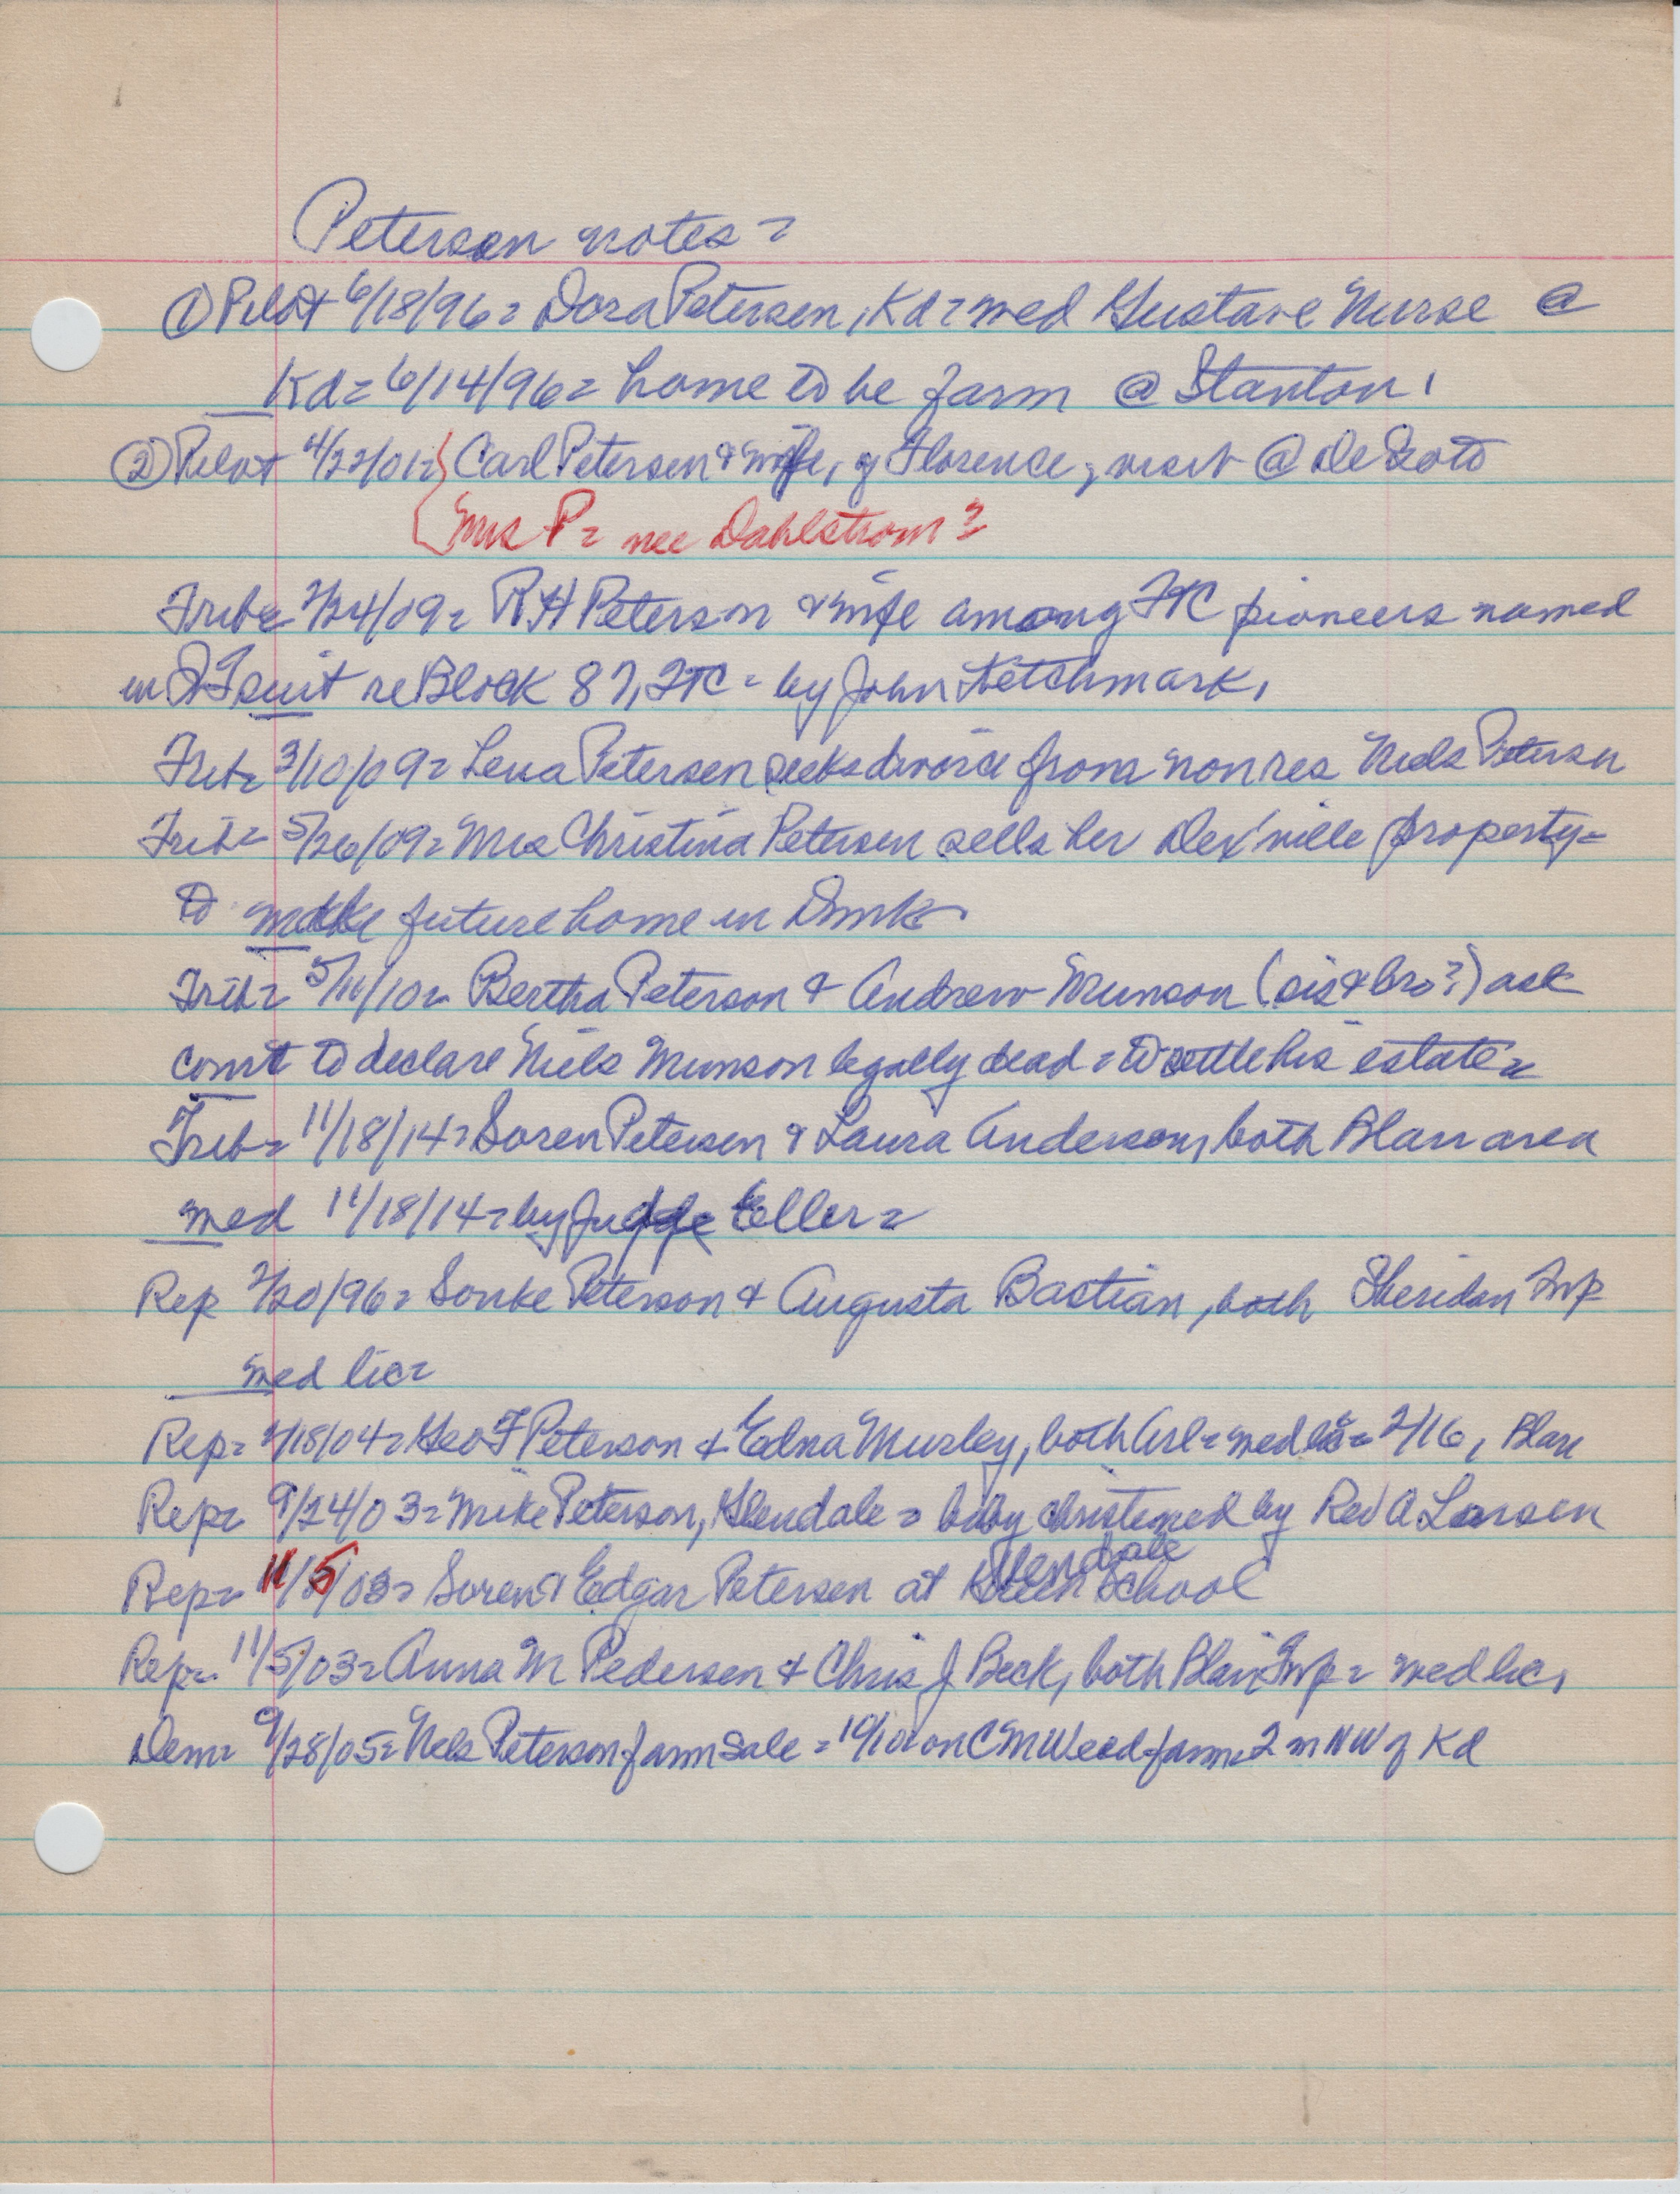 Petersen notes =
① Pilot 6/18/96 = Dora Petersen, Kd = med Gustave Nurse @
Kd = 6/14/96 = home to be farm @ Stanton,
② Pilot 4/22/01 = Carl Petersen & wife, of Florence, visit @ De Soto
Mrs P = nee Dahlstrom?
Trib = 2/24/09 = RH Peterson & wife among FTC pioneers named
in suit re Block 87, FTC = by John Ketchmark,
Trib = 3/10/09 = Lena Petersen seeks divorce from non res Niels Petersen
Trib = 5/26/09 = Mrs Christina Petersen sells her Dex'ville property =
to make future home in Dmk
Trib = 5/11/10 = Bertha Peterson & Andrew Munson (sis & bro?) ask
court to declare Niels Munson legally dead = to settle his estate =
Trib = 11/18/14 = Soren Petersen & Laura Anderson, both Blair area
med 11/18/14 = by Judge Eller =
Rep 2/20/96 = Sonke Peterson & Augusta Bastian, both Sheridan Twp
med lic =
Rep = 2/18/04 = Geo F Peterson & Edna Murley, both Arl = med lic = 2/16, Blair
Rep = 9/24/03 = Mike Peterson, Glendale = baby christened by Rev A Larsen
Rep = 11/5/03 = Soren & Edgar Petersen at Glendale School
Rep = 11/5/03 = Anna M Pedersen & Chris J Beck, both Blair Twp = med lic,
Dem = 9/28/05 = Nels Peterson farm sale = 10/10 on CM Weed farm = 2 m NW of Kd